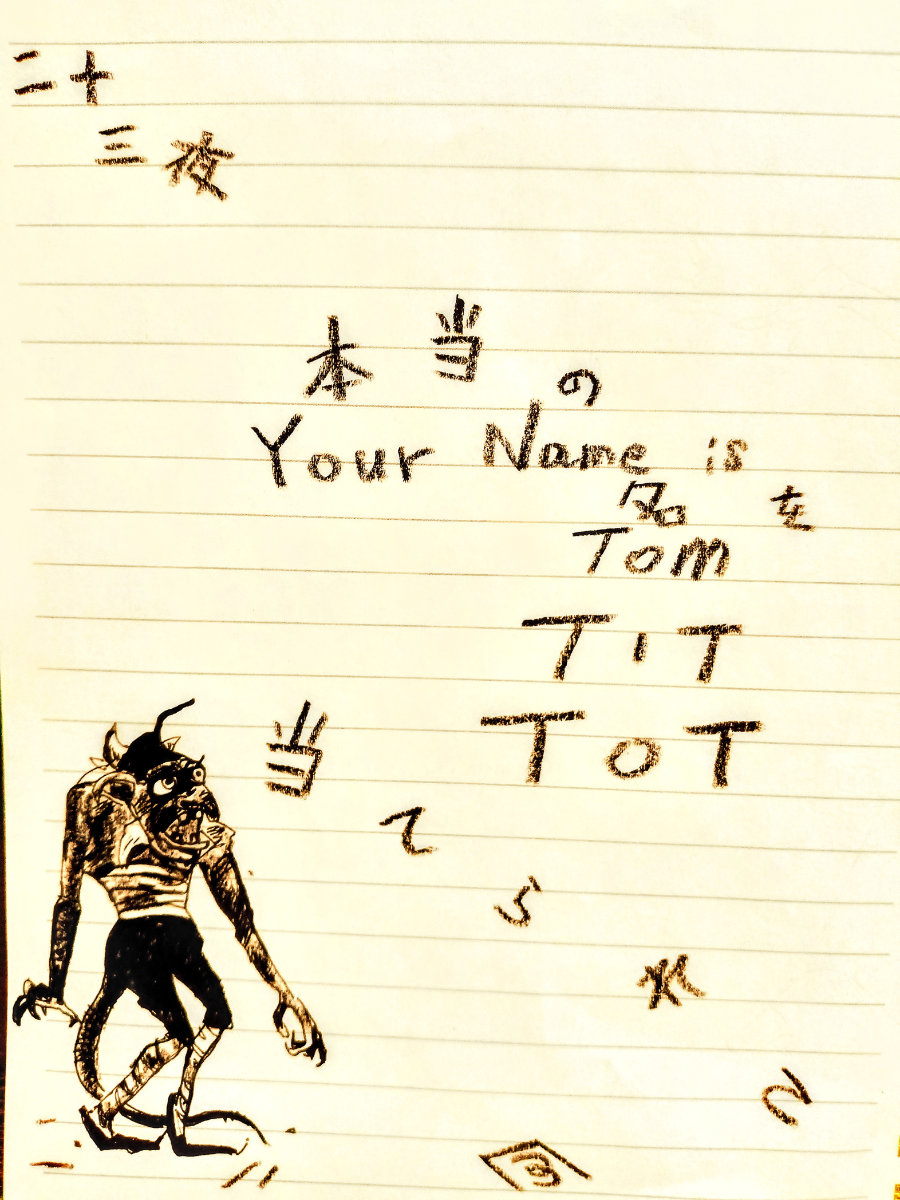 二十
三夜
本当の
Your Name is
名を
Tom
TIT
TOT
当てられる
回